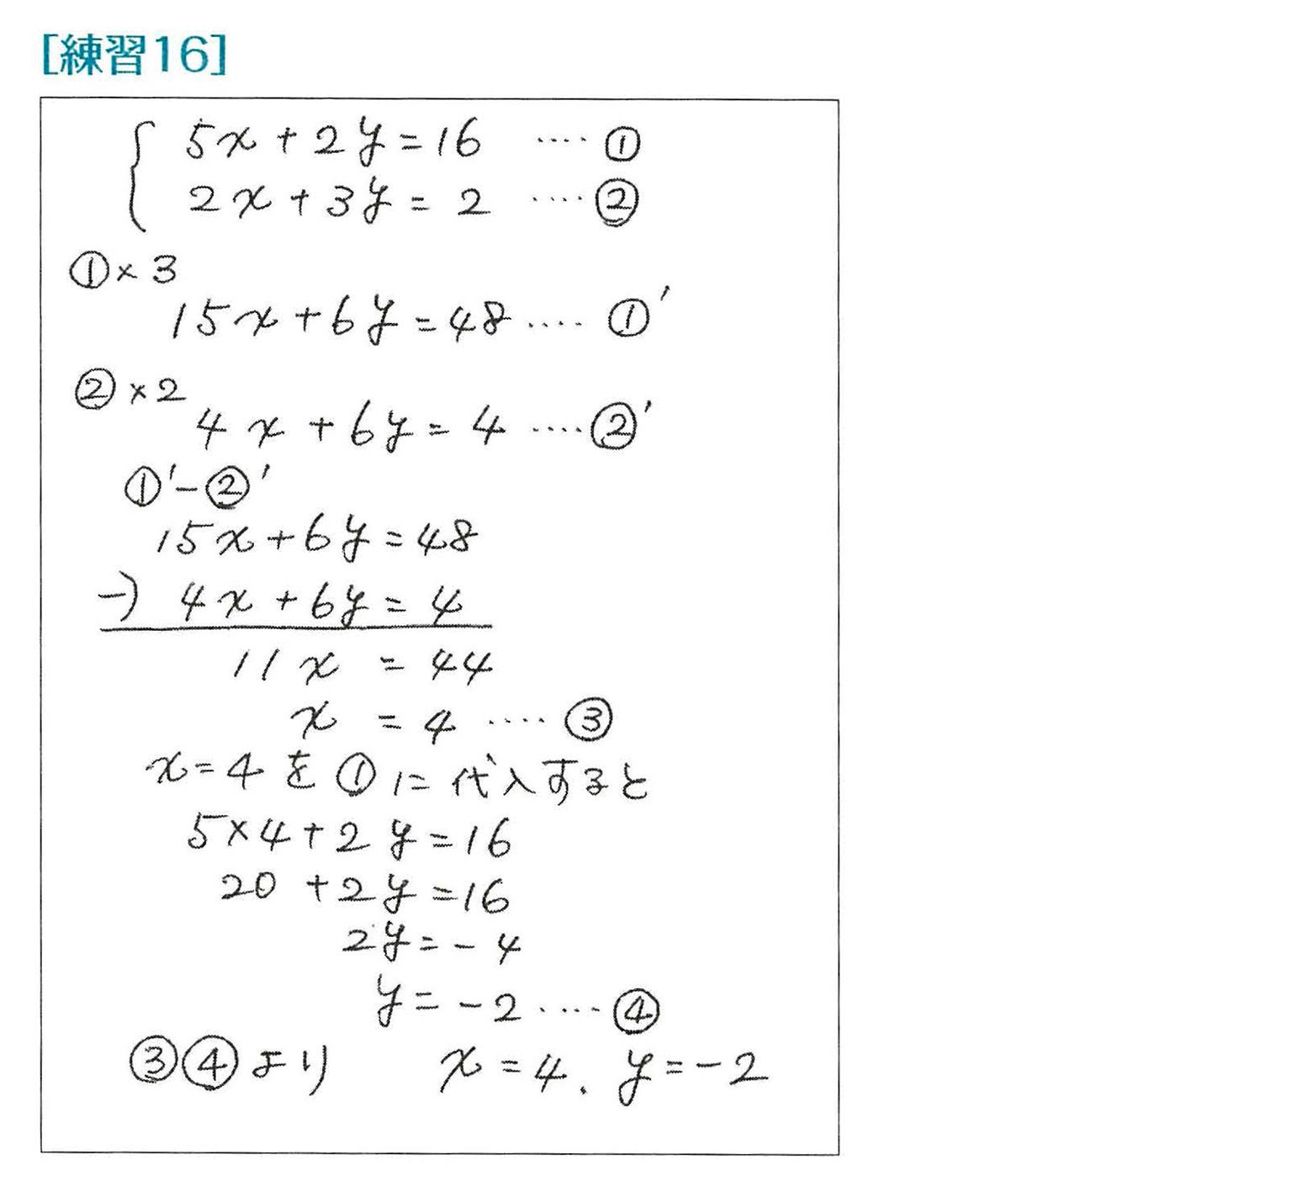 [練習16]
5x+2y=16 ····①
2x+3y=2 ····②
①×3
15x+6y=48 ····①'
②×2
4x+6y=4 ····②'
①'-②'
15x+6y=48
-) 4x+6y=4
11x=44
x=4 ····③
x=4を①に代入すると
5×4+2y=16
20+2y=16
2y=-4
y=-2 ····④
③④より x=4、y=-2